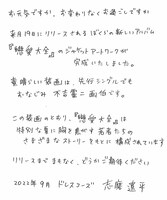 お元気ですか。お変わりなくお過ごしですか
来月19日にリリースされるぼくの新しいアルバム
『戀愛大全』のジャケットアートワークが
完成いたしました。
素晴らしい装画は、先行シングルでも
おなじみ 不吉霊二画伯です。
この装画のとおり、『戀愛大全』は
特別な夏に胸を焦がす若者たちの
さまざまなストーリーをもとに構成されています
リリースまでまもなく、どうかご期待ください
2022年9月 ドレスコーズ 志磨遼平